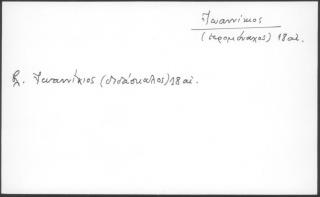 Ἰωαννίκιος
(ἱερομόναχος) 18 αἰ.
βλ. Ἰωαννίκιος (διδάσκαλος) 18 αἰ.